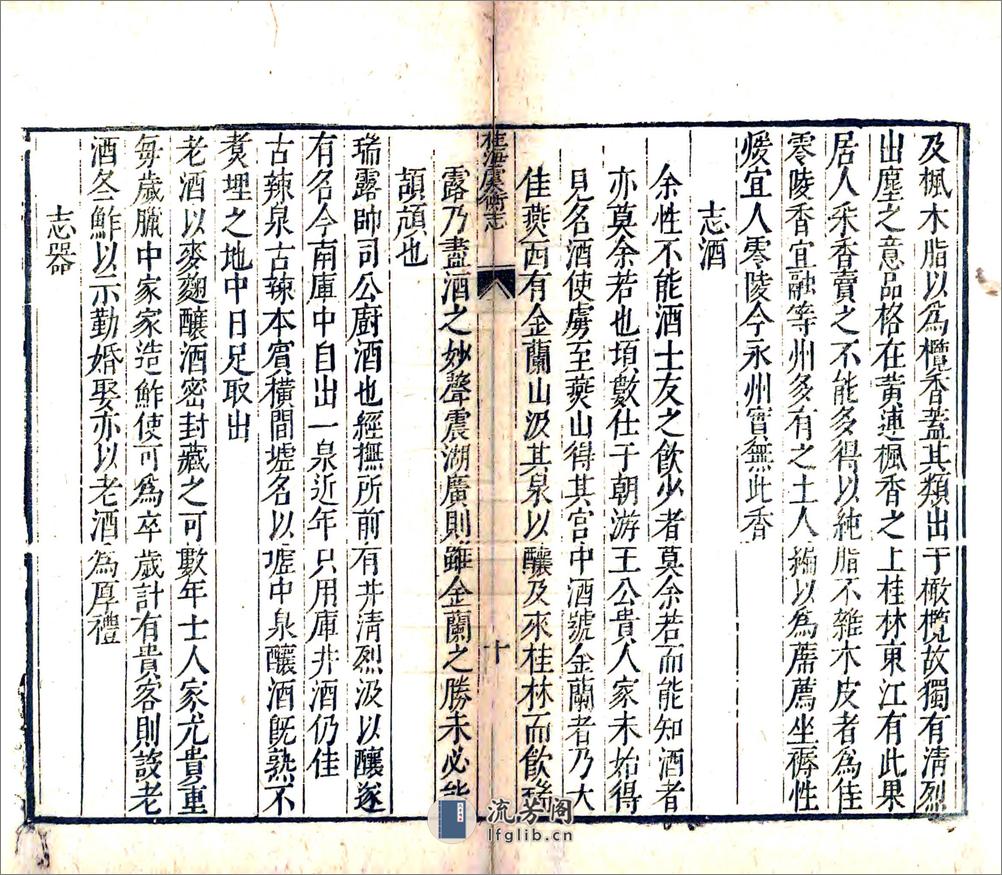 及楓木脂以爲欖香蓋其類出于橄欖故獨有清烈
出塵之意品格在黃連楓香之上桂林東江有此果
居人采香賣之不能多得以純脂不雜木皮者爲佳
零陵香宜融等州多有之土人編以爲席薦坐褥性
煖宜人零陵今永州實無此香
志酒
余性不能酒士友之飲少者莫余若而能知酒者
亦莫余若也頃數仕于朝游王公貴人家未始得
見名酒使虜至燕山得其宮中酒號金蘭者乃大
佳燕西有金蘭山汲其泉以釀及來桂林而飲瑞
桂海虞衡志
十
露乃盡酒之妙聲震湖廣則雖金蘭之勝未必能
頡頏也
瑞露帥司公廚酒也經撫所前有井清烈汲以釀遂
有名今南庫中自出一泉近年只用庫井酒仍佳
古辣泉古辣本賓橫間墟名以墟中泉釀酒旣熟不
煑埋之地中日足取出
老酒以麥麴釀酒密封藏之可數年士人家尤貴重
毎歲臘中家家造鮓使可爲卒歲計有貴客則設老
酒冬鮓以示勤婚娶亦以老酒爲厚禮
志器
流芳阁
lfglib.cn